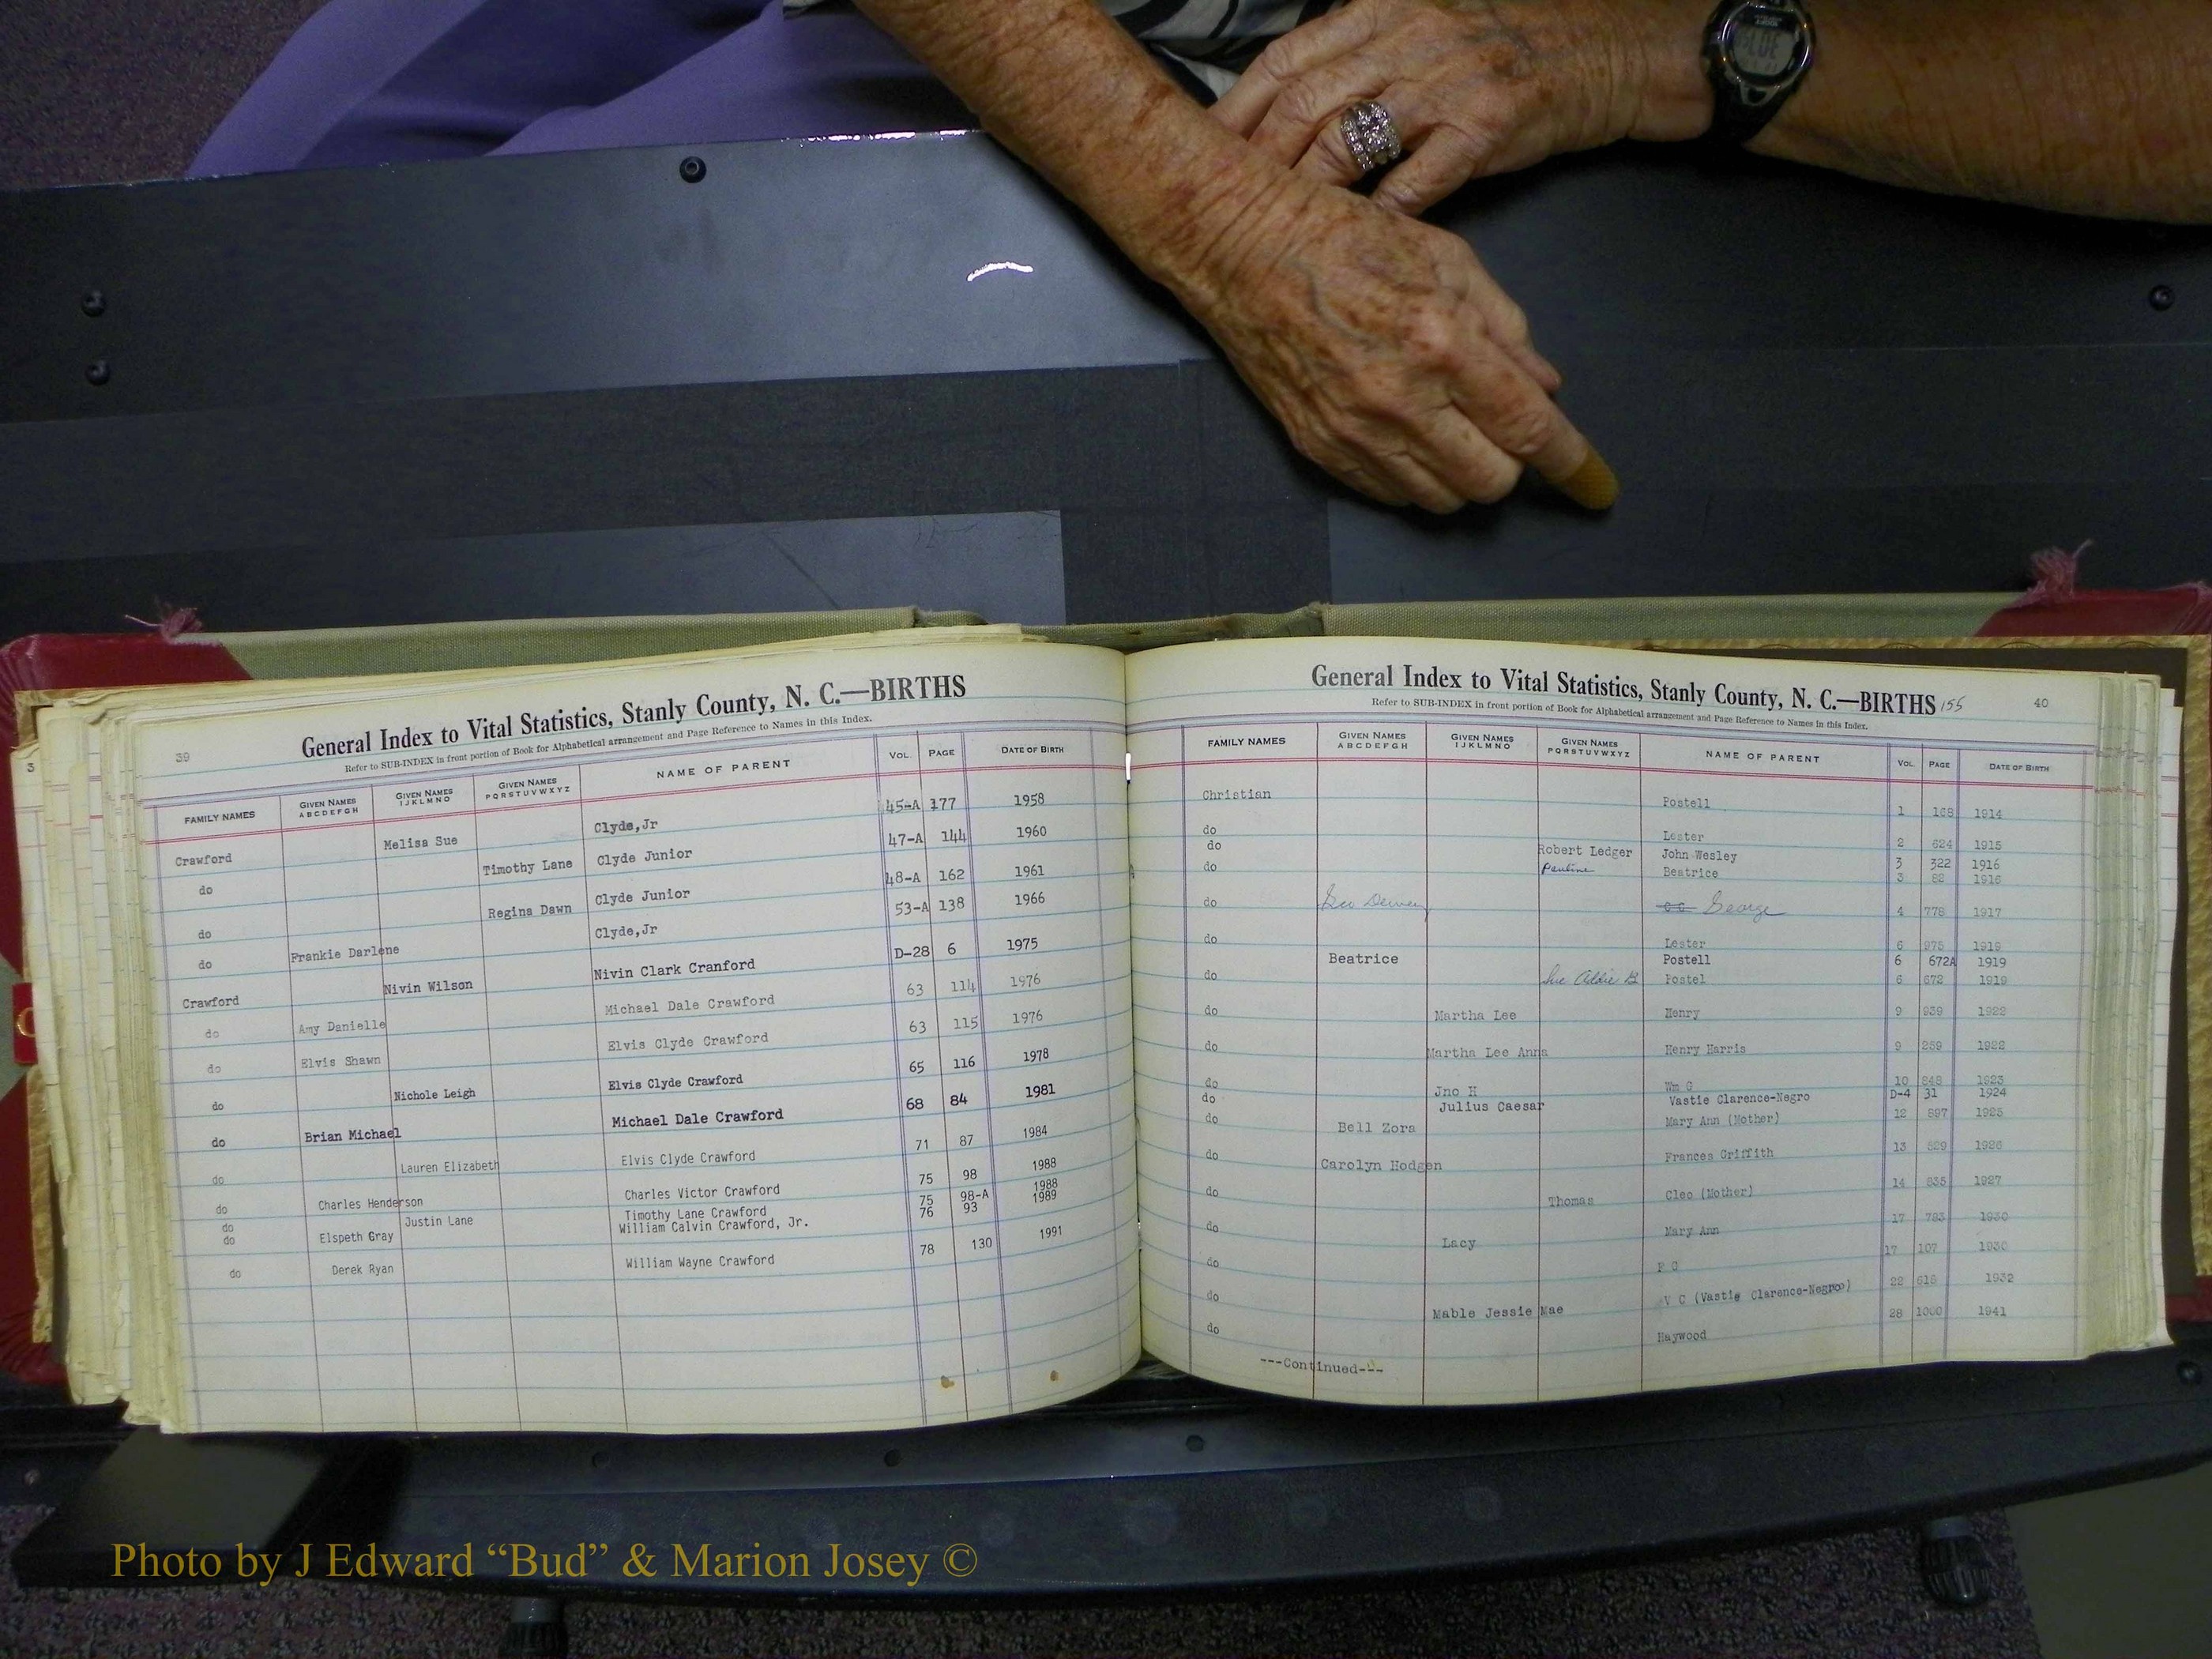 39
General Index to Vital Statistics, Stanly County, N. C.—BIRTHS
Refer to SUB-INDEX in front portion of Book for Alphabetical arrangement and Page Reference to Names in this Index.
FAMILY NAMES GIVEN NAMES ABCDEFGH GIVEN NAMES IJKLMNO GIVEN NAMES PQRSTUVWXYZ NAME OF PARENT VOL. PAGE DATE OF BIRTH
Crawford Melisa Sue Clyde,Jr 45-A 177 1958
do Timothy Lane Clyde Junior 47-A 144 1960
do Regina Dawn Clyde Junior 48-A 162 1961
do Frankie Darlene Clyde,Jr 53-A 138 1966
Crawford Nivin Wilson Nivin Clark Cranford D-28 6 1975
do Amy Danielle Michael Dale Crawford 63 114 1976
do Elvis Shawn Elvis Clyde Crawford 63 115 1976
do Nichole Leigh Elvis Clyde Crawford 65 116 1978
do Brian Michael Michael Dale Crawford 68 84 1981
do Lauren Elizabeth Elvis Clyde Crawford 71 87 1984
do Charles Henderson Charles Victor Crawford 75 98 1988
do Justin Lane Timothy Lane Crawford 75 98-A 1988
do Elspeth Gray William Calvin Crawford, Jr. 76 93 1989
do Derek Ryan William Wayne Crawford 78 130 1991
General Index to Vital Statistics, Stanly County, N. C.—BIRTHS 155 40
Refer to SUB-INDEX in front portion of Book for Alphabetical arrangement and Page Reference to Names in this Index.
FAMILY NAMES GIVEN NAMES ABCDEFGH GIVEN NAMES IJKLMNO GIVEN NAMES PQRSTUVWXYZ NAME OF PARENT VOL. PAGE DATE OF BIRTH
Christian Postell 1 168 1914
do Lester 2 624 1915
do Robert Ledger John Wesley 3 322 1916
do Pauline Beatrice 3 82 1916
do Geo Dewey George 4 778 1917
do Lester 6 975 1919
Beatrice Postell 6 672A 1919
do Sue Addie B Postel 6 672 1919
do Martha Lee Henry 9 939 1922
do Martha Lee Anna Henry Harris 9 259 1922
do Jno H Wm G 10 848 1923
do Julius Caesar Vastie Clarence-Negro D-4 31 1924
do Bell Zora Mary Ann (Mother) 12 897 1925
do Carolyn Hodgen Frances Griffith 13 529 1926
do Thomas Cleo (Mother) 14 835 1927
do Lacy Mary Ann 17 783 1930
do F G 17 107 1930
do Mable Jessie Mae V C (Vastie Clarence-Negro) 22 618 1932
do Haywood 28 1000 1941
---Continued---
3
Photo by J Edward “Bud” & Marion Josey ©